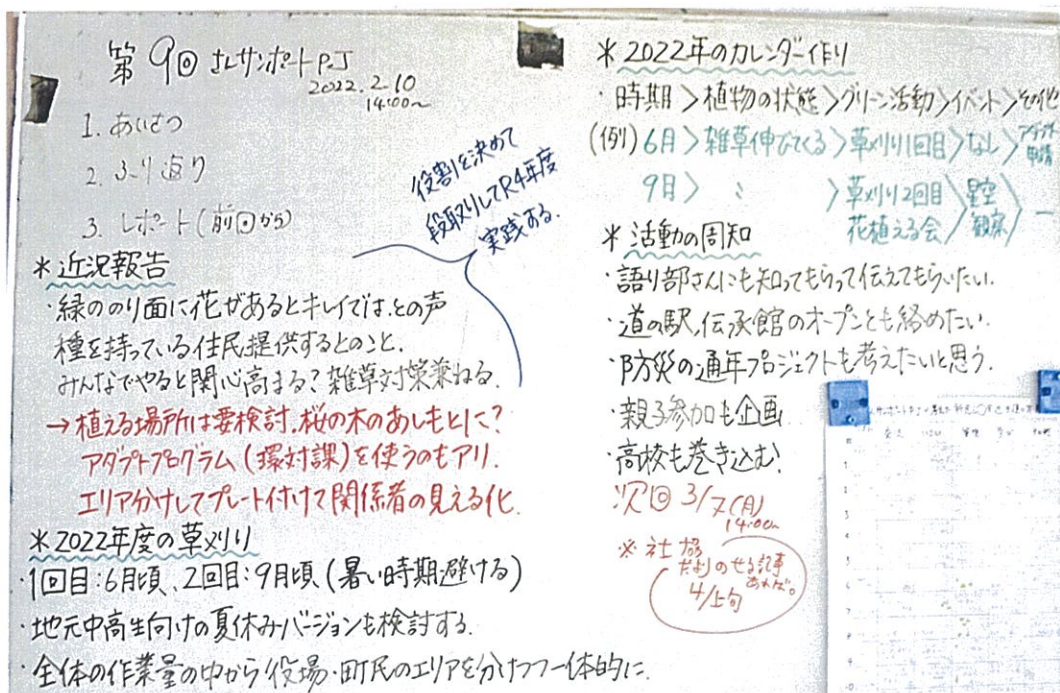 第9回 さんサンポートPJ
2022.2.10
14:00〜
1. あいさつ
2. ふり返り
3. レポート(前回から)
役割を決めて
段取りしてR4年度
実践する.
*近況報告
・緑ののり面に花があるとキレイでは、との声
種を持っている住民提供するとのこと.
みんなでやると関心高まる?雑草対策兼ねる.
→植える場所は要検討.桜の木のあしもとに?
アダプトプログラム(環対課)を使うのもアリ.
エリア分けしてプレート付けて関係者の見える化.
*2022年度の草刈り
・1回目:6月頃、2回目:9月頃(暑い時期避ける)
・地元中高生向けの夏休みバージョンも検討する.
・全体の作業量の中から役場・町民のエリアを分けつつ一体的に.
*2022年のカレンダー作り
・時期>植物の状態>グリーン活動>イベント>その他
(例)6月>雑草伸びてくる>草刈り1回目>なし>アダプト申請
9月> 〃 >草刈り2回目 花植える会>星空観察>ー
*活動の周知
・語り部さんにも知ってもらって伝えてもらいたい.
・道の駅、伝承館のオープンとも絡めたい.
・防災の通年プロジェクトも考えたいと思う.
・親子参加も企画
・高校も巻き込む!
次回 3/7(月)
14:00〜
※社協
だよりのせる記事
あれば。
4/上旬